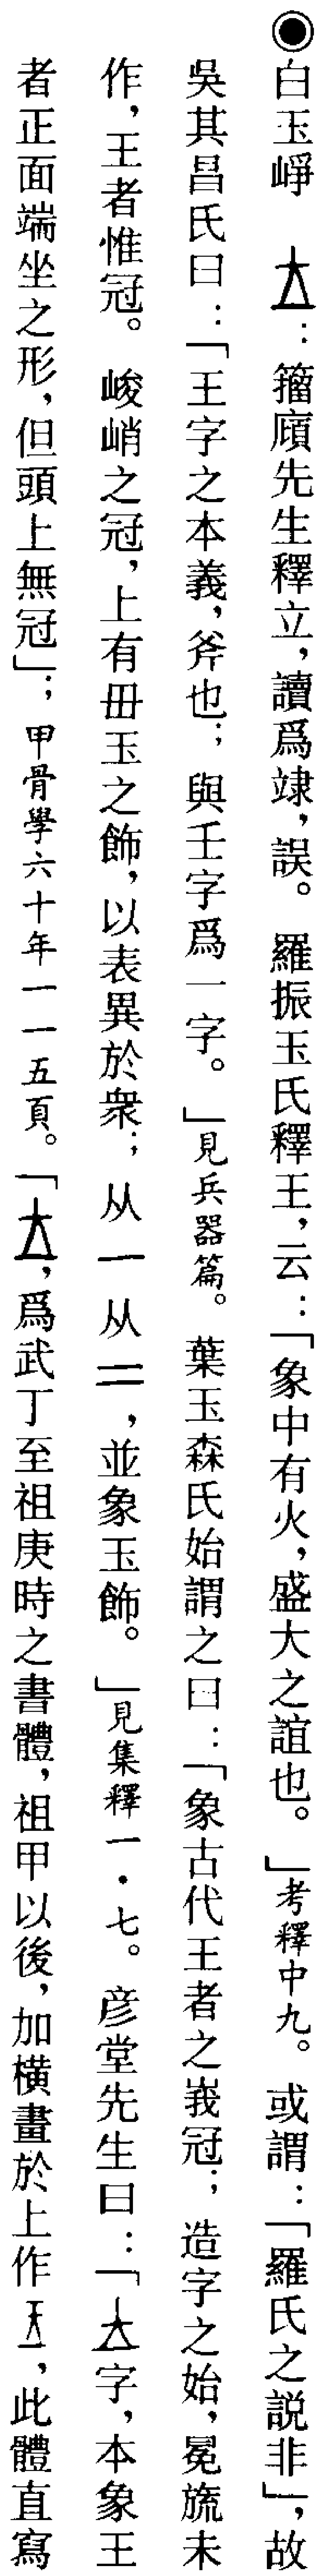 ◉白玉崢　：籀廎先生釋立，讀爲竦，誤。羅振玉氏釋王，云：「象中有火，盛大之誼也。」考釋中九。或謂：「羅氏之說非」，故
吳其昌氏曰：「王字之本義，斧也；與王字爲一字。」見兵器篇。葉玉森氏始謂之曰：「象古代王者之峩冠；造字之始，冕旒未
作，王者惟冠。峻峭之冠，上有毌玉之飾，以表異於衆；从一从二，並象玉飾。」見集釋一．七。彥堂先生曰：「字，本象王
者正面端坐之形，但頭上無冠」；甲骨學六十年一一五頁。「，爲武丁至祖庚時之書體，祖甲以後，加橫畫於上作，此體直寫